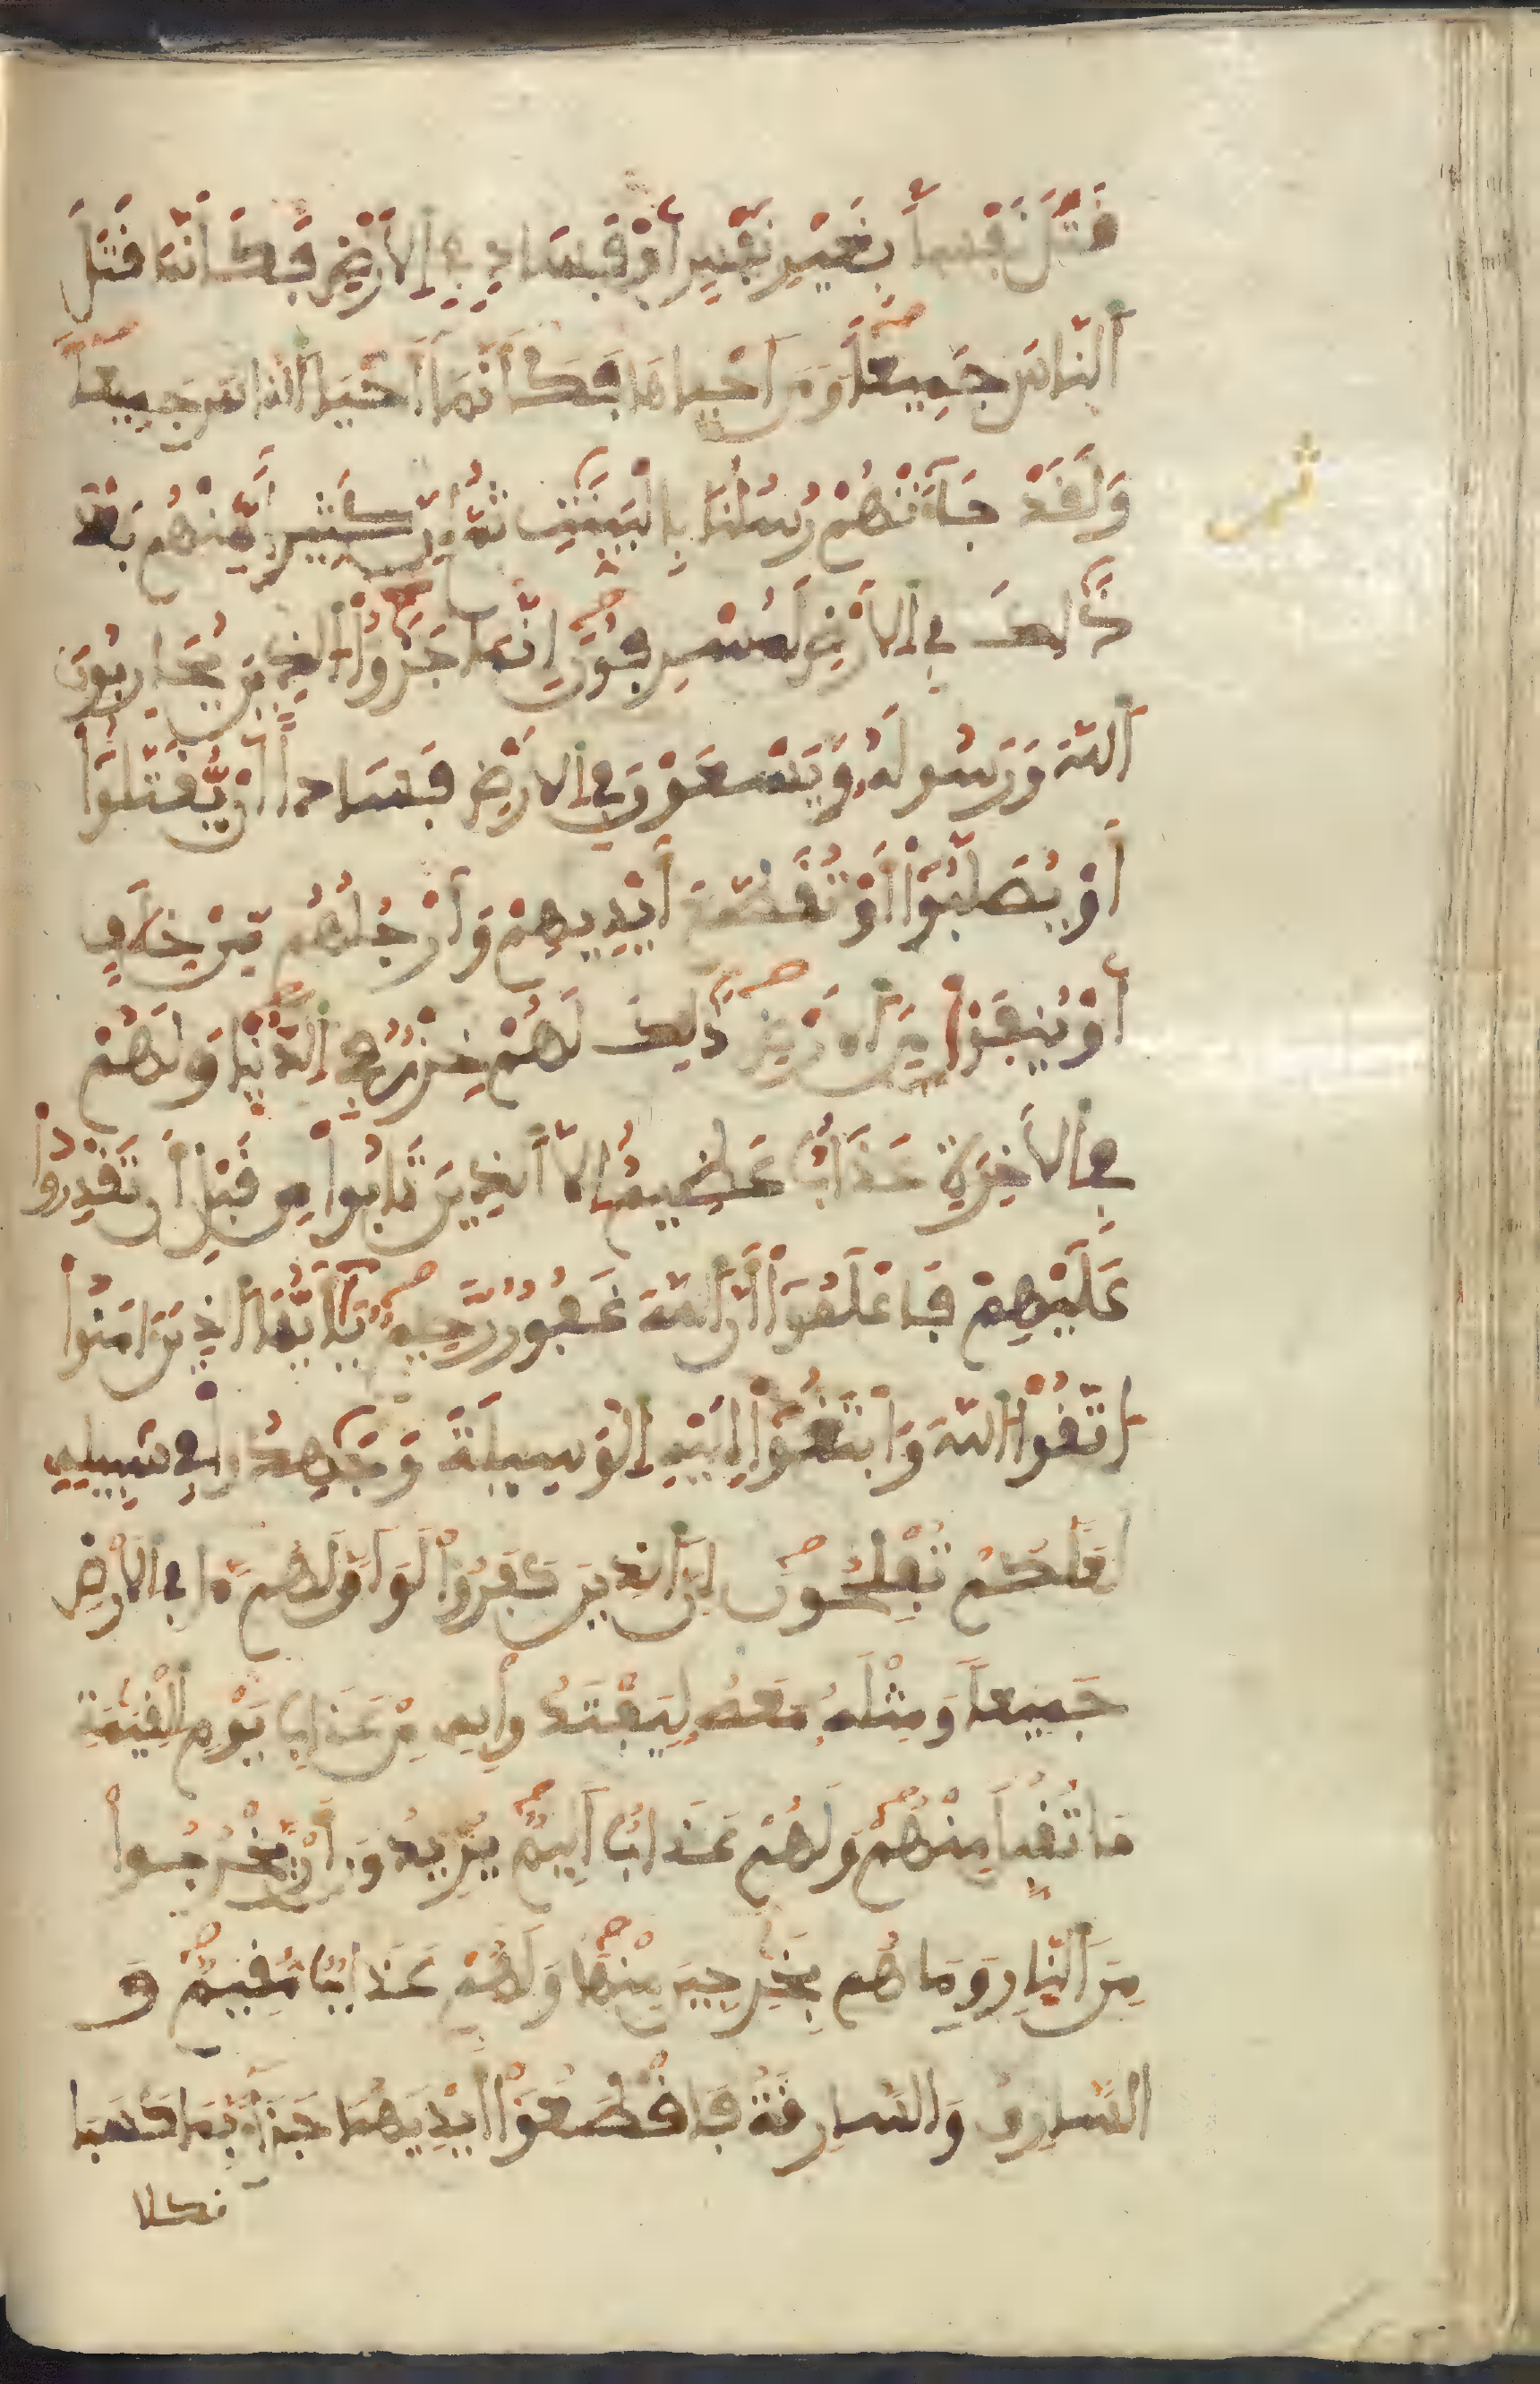 قَتَلَ نَفْساً بِغَيْرِ نَفْسٍ أَوْ فَسَادٍ فِي اِلَارْضِ فَكَأَنَّمَا قَتَلَ
اَلنَّاسَ جَمِيعاً وَمَنَ اَحْيَاهَا فَكَأَنَّمَا أَحْيَا اَلنَّاسَ جَمِيعاً
وَلَقَدْ جَآءَتْهُمْ رُسُلُنَا بِالْبَيِّنَٰتِ ثُمَّ إِنَّ كَثِيراً مِّنْهُم بَعْدَ
ثمن
ذَٰلِكَ فِي اِلَارْضِ لَمُسْرِفُونَ إِنَّمَا جَزَٰٓؤُاْ اُلذِينَ يُحَارِبُونَ
اَللَّهَ وَرَسُولَهُ وَيَسْعَوْنَ فِي اِلَارْضِ فَسَاداً اَنْ يُّقَتَّلُوٓاْ
أَوْ يُصَلَّبُوٓاْ أَوْ تُقَطَّعَ أَيْدِيهِمْ وَأَرْجُلُهُم مِّنْ خِلَٰفٍ
أَوْ يُنفَوْاْ مِنَ اَلَارْضِ ذَٰلِكَ لَهُمْ خِزْيٌ فِي اِلدُّنْيَا وَلَهُمْ
فِي اِلَاخِرَةِ عَذَابٌ عَظِيمٌ اِلَّا اَلذِينَ تَابُواْ مِن قَبْلِ أَن تَقْدِرُواْ
عَلَيْهِمْ فَاعْلَمُوٓاْ أَنَّ اَللَّهَ غَفُورٌ رَّحِيمٌ يَٰٓأَيُّهَا اَلذِينَ ءَامَنُواْ
اُتَّقُواْ اُللَّهَ وَابْتَغُوٓاْ إِلَيْهِ اِلْوَسِيلَةَ وَجَٰهِدُواْ فِي سَبِيلِهِ
لَعَلَّكُمْ تُفْلِحُونَ إِنَّ اَلذِينَ كَفَرُواْ لَوَ اَنَّ لَهُم مَّا فِي اِلَارْضِ
جَمِيعاً وَمِثْلَهُ مَعَهُ لِيَفْتَدُواْ بِهِ مِنْ عَذَابِ يَوْمِ اِلْقِيَٰمَةِ
مَا تُقُبِّلَ مِنْهُمْ وَلَهُمْ عَذَابٌ اَلِيمٌ يُرِيدُونَ أَنْ يَّخْرُجُواْ
مِنَ اَلنّارِ وَمَا هُم بِخَٰرِجِينَ مِنْهَا وَلَهُمْ عَذَابٌ مُّقِيمٌ وَ
السَّارِقُ وَالسَّارِقَةُ فَاقْطَعُوٓاْ أَيْدِيَهُمَا جَزَآءً بِمَا كَسَبَا
نكلا